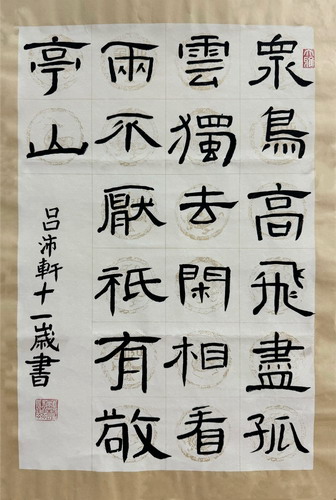 衆鳥高飛盡孤
雲獨去閑相看
兩不厭祇有敬
亭山
吕沛軒十一歲書